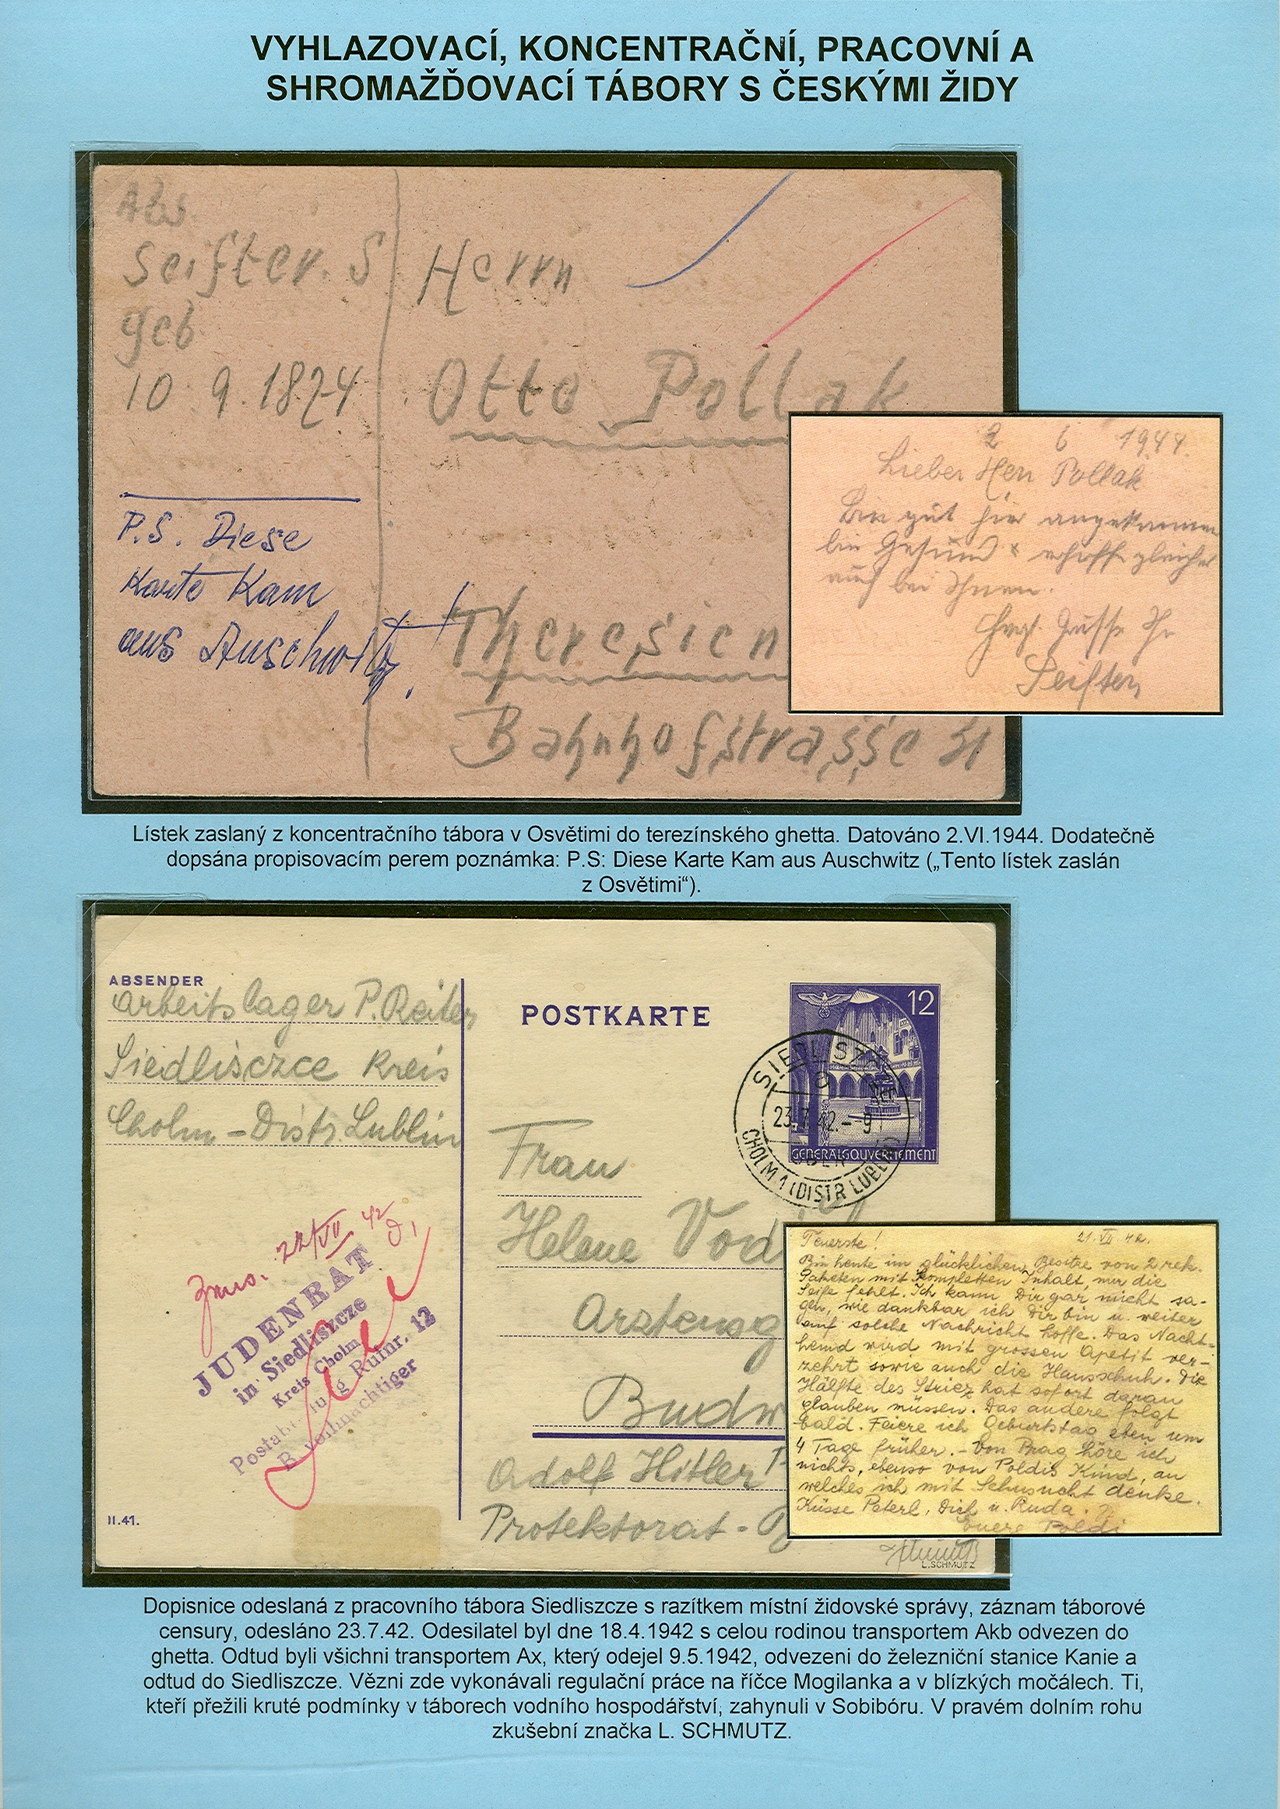 VYHLAZOVACÍ, KONCENTRAČNÍ, PRACOVNÍ A
SHROMAŽĎOVACÍ TÁBORY S ČESKÝMI ŽIDY
Abs.
Seifter. S
geb
10 9. 1874
P.S. Diese
Karte Kam
aus Auschwitz!
Herrn
Otto Pollak
Theresien
Bahnhofstrasse 31
2 6 1944.
Lieber Herr Pollak
Bin gut hier angekommen
bin Gesund
auch bei Ihnen.
Seifter
Lístek zaslaný z koncentračního tábora v Osvětimi do terezínského ghetta. Datováno 2.VI.1944. Dodatečně
dopsána propisovacím perem poznámka: P.S: Diese Karte Kam aus Auschwitz („Tento lístek zaslán
z Osvětimi“).
ABSENDER
Arbeitslager P. Reiter
Siedlisczce Kreis
Cholm - Distr. Lublin
JUDENRAT
in Siedliszcze
Kreis Cholm
II.41.
POSTKARTE
12
GENERALGOUVERNEMENT
23.7.42.-9
CHOLM 1 (DISTR LUBLIN)
Frau
Helene
Budw
Adolf Hitler
Protektorat -
L.SCHMUTZ
Teuerste! 21. VII 42.
Bin heute im glücklichen Besitze von 2 rek.
Paketen mit kompletten Inhalt, nur die
Seife fehlt. Ich kann Dir gar nicht sa-
gen, wie dankbar ich Dir bin u. weiter
auf solche Nachricht hoffe. Das Nacht-
hemd wird mit grossen Apetit ver-
zehrt sowie auch die Hausschuh. Die
Hälfte des Striez hat sofort daran
glauben müssen. Das andere folgt
bald. Feiere ich Geburtstag eben um
4 Tage früher. - Von Prag höre ich
nichts, ebenso von Poldis Kind, an
welches ich mit Sehnsucht denke.
Küsse Peterl, Dich u. Ruda.
Euere Poldi
Dopisnice odeslaná z pracovního tábora Siedliszcze s razítkem místní židovské správy, záznam táborové
censury, odesláno 23.7.42. Odesilatel byl dne 18.4.1942 s celou rodinou transportem Akb odvezen do
ghetta. Odtud byli všichni transportem Ax, který odejel 9.5.1942, odvezeni do železniční stanice Kanie a
odtud do Siedliszcze. Vězni zde vykonávali regulační práce na říčce Mogilanka a v blízkých močálech. Ti,
kteří přežili kruté podmínky v táborech vodního hospodářství, zahynuli v Sobibóru. V pravém dolním rohu
zkušební značka L. SCHMUTZ.